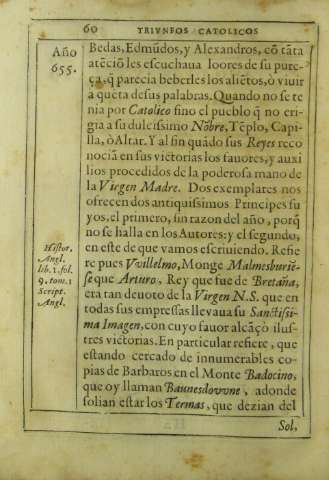 60 TRIVNFOS CATOLICOS
Año
655.
Bedas, Edmũdos, y Alexandros, cõ tãta
atẽciõ les escuchaua loores de su pure-
ça, q̃ parecia beberles los aliẽtos, ò viuir
a queta de sus palabras. Quando no se te
nia por Catolico sino el pueblo q̃ no eri-
gia a su dulcissimo Nõbre, Tẽplo, Capi-
lla, ò Altar. Y al fin quãdo sus Reyes reco
nociã en sus victorias los fauores, y auxi
lios procedidos de la poderosa mano de
la Virgen Madre. Dos exemplares nos
ofrecen dos antiquissimos Principes su
yos, el primero, sin razon del año, porq̃
no se halla en los Autores: y el segundo,
en este de que vamos escriuiendo. Refie
re pues VVillelmo, Monge Malmesburiẽ-
se que Arturo, Rey que fue de Bretaña,
era tan deuoto de la Virgen N.S. que en
todas sus empressas lleuaua su Sanctissi-
ma Imagen, con cuyo fauor alcãçò ilus-
tres victorias. En particular refiere, que
estando cercado de innumerables co-
pias de Barbaros en el Monte Badocino,
que oy llaman Baunesdovvne, adonde
solian estar los Termas, que dezian del
Histor.
Angl.
lib. 1. fol.
9. tom. 1
Script.
Angl.
Sol,